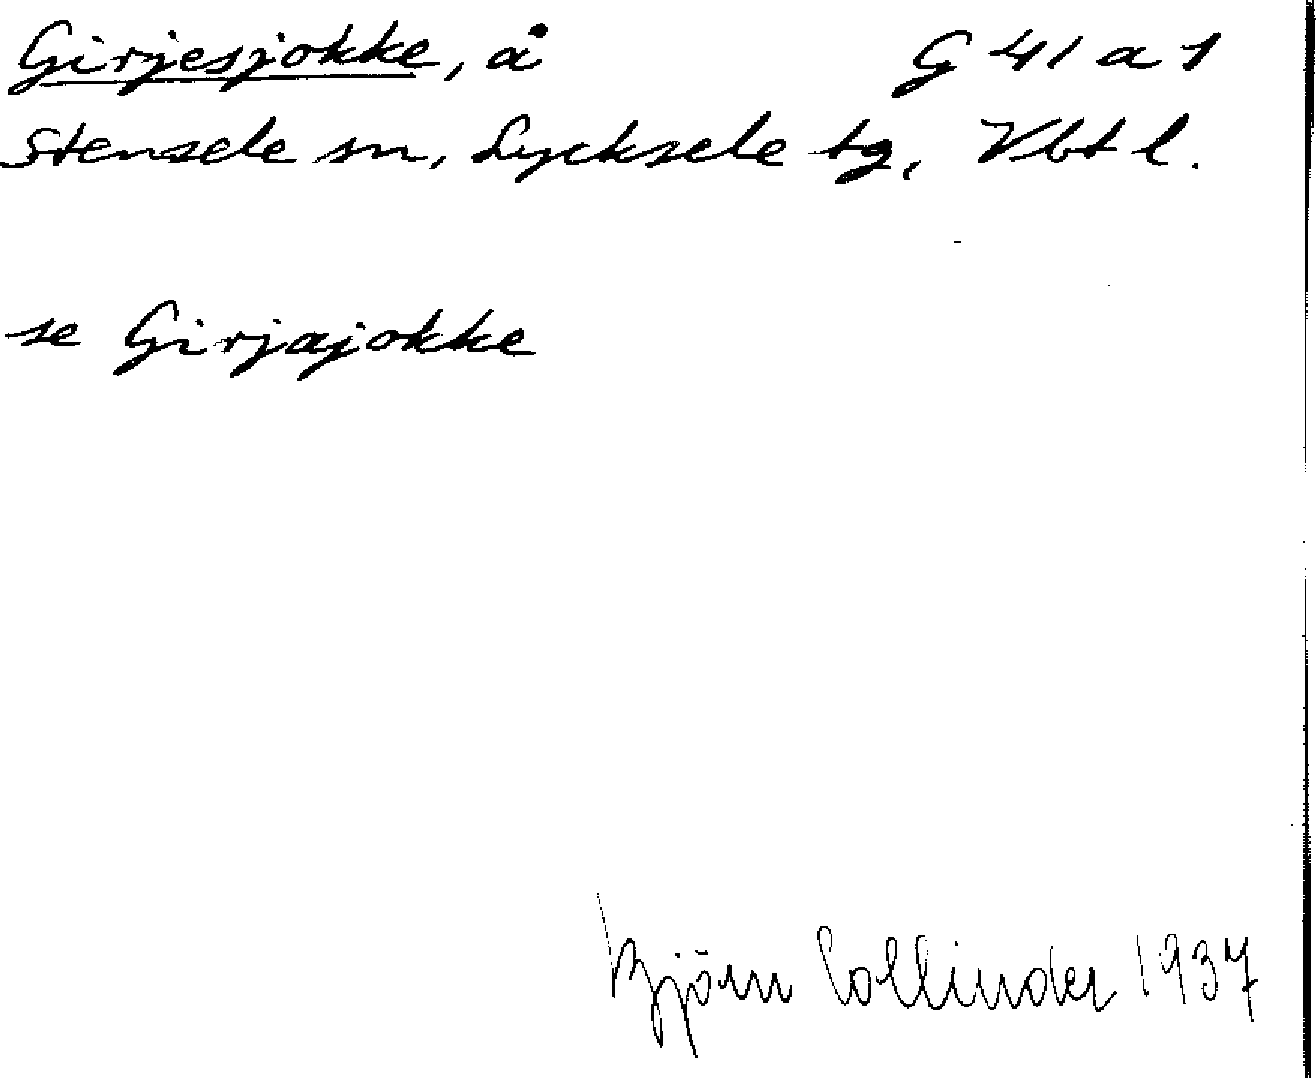 Girjesjokke, å G 41 a 1
Stensele sn, Lycksele tg, Vbtl.
se Girjajokke
Björn Collinder 1937